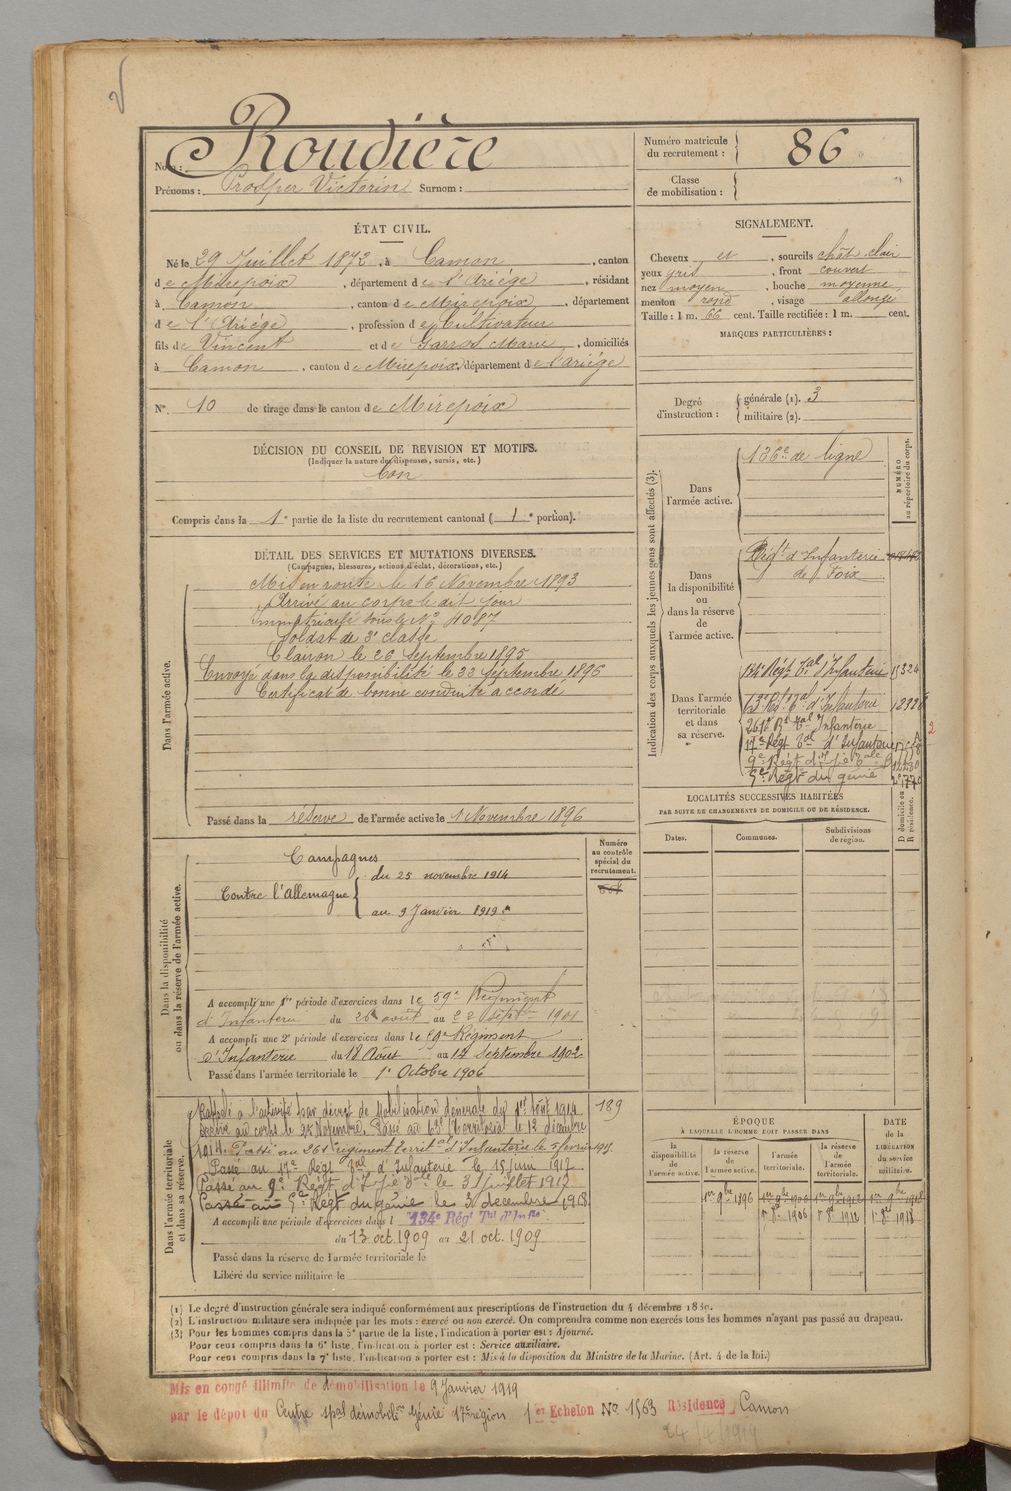 Nom : Roudière
Prénoms : Prosper Victorin Surnom :
Numéro matricule
du recrutement : 86
Classe
de mobilisation :
ÉTAT CIVIL.
Né le 29 Juillet 1872, à Camon, canton
de Mirepoix, département de l'Ariège, résidant
à Camon, canton de Mirepoix, département
de l'Ariège, profession de Cultivateur
fils de Vincent et de Garros Marie, domiciliés
à Camon, canton de Mirepoix, département de l'Ariège
N° 10 de tirage dans le canton de Mirepoix
DÉCISION DU CONSEIL DE REVISION ET MOTIFS.
(Indiquer la nature des dispenses, sursis, etc.)
bon
Compris dans la 1e partie de la liste du recrutement cantonal ( 1e portion).
SIGNALEMENT.
Cheveux et, sourcils chât. clair
yeux gris, front couvert
nez moyen, bouche moyenne
menton rond, visage allongé
Taille : 1 m. 66 cent. Taille rectifiée : 1 m. cent.
MARQUES PARTICULIÈRES :
Degré
d'instruction :
générale (1). 3
militaire (2).
DÉTAIL DES SERVICES ET MUTATIONS DIVERSES.
(Campagnes, blessures, actions d'éclat, décorations, etc.)
Dans l'armée active.
Mis en route le 16 Novembre 1893
Arrivé au corps le dit jour
Immatriculé sous le N° 4087
Soldat de 2e classe
Clairon le 26 Septembre 1895
Envoyé dans la disponibilité le 22 Septembre 1896
Certificat de bonne conduite accordé
Passé dans la réserve de l'armée active le 1 Novembre 1896
Indication des corps auxquels les jeunes gens sont affectés (3).
NUMÉRO
au répertoire du corps.
Dans
l'armée active.
126e de ligne
Dans
la disponibilité
ou
dans la réserve
de
l'armée active.
Régt d'Infanterie
de Foix
Dans l'armée
territoriale
et dans
sa réserve.
134e Régt Tal d'Infanterie 15324
63e Rgt Tal d'Infanterie
261e Rt Tal Infanterie
17e Régt Tal d'Infanterie
9e Régt d'Ifie Tale
5e Régt du génie
2
LOCALITÉS SUCCESSIVES HABITÉES
PAR SUITE DE CHANGEMENTS DE DOMICILE OU DE RÉSIDENCE.
Dates. Communes. Subdivisions
de région.
D domicile ou
R résidence.
Dans la disponibilité
ou dans la réserve de l'armée active.
Numéro
au contrôle
spécial du
recrutement.
Campagnes
Contre l'Allemagne
du 25 novembre 1914
au 9 Janvier 1919
A accompli une 1re période d'exercices dans le 59e Régiment
d'Infanterie du 26 août au 22 septre 1901
A accompli une 2e période d'exercices dans le 59e Régiment
d'Infanterie du 18 Août au 14 Septembre 1902
Passé dans l'armée territoriale le 1e Octobre 1906
Dans l'armée territoriale
et dans sa réserve.
189
Rappelé à l'activité par décret de Mobilisation générale du 1er Août 1914
Arrivé au corps le 25 Novembre. Passé au 63e Territorial le 12 décembre
1914. Passé au 261e régiment territal d'Infanterie le 5 février 1915.
Passé au 17e Régt Tal d'Infanterie le 15 juin 1917
Passé au 9e Régt d'Ifie Tale le 31 juillet 1917
Passé au 5e Régt du génie le 31 decembre 1918
A accompli une période d'exercices dans l 134e Régt Tal d'Infie
du 13 oct 1909 au 21 oct. 1909
Passé dans la réserve de l'armée territoriale le
Libéré du service militaire le
ÉPOQUE
À LAQUELLE L'HOMME DOIT PASSER DANS
DATE
de la
LIBÉRATION
du service
militaire.
la
disponibilité
de
l'armée active.
la réserve
de
l'armée active.
l'armée
territoriale.
la réserve
de
l'armée
territoriale.
1er 9bre 1896 1er 9bre 1906 1er 9bre 1912 1er 9bre 1918
1e 8re 1906 1e 8re 1912 1e 8re 1918
(1) Le degré d'instruction générale sera indiqué conformément aux prescriptions de l'instruction du 4 décembre 1889.
(2) L'instruction militaire sera indiquée par les mots : exercé ou non exercé. On comprendra comme non exercés tous les hommes n'ayant pas passé au drapeau.
(3) Pour les hommes compris dans la 5e partie de la liste, l'indication à porter est : Ajourné.
Pour ceux compris dans la 6e liste, l'indication à porter est : Service auxiliaire.
Pour ceux compris dans la 7e liste, l'indication à porter est : Mis à la disposition du Ministre de la Marine. (Art. 4 de la loi.)
Mis en congé illimité de démobilisation le 9 Janvier 1919
par le dépôt du Centre spal démobeon Génie 17e région 1er Echelon N° 1563 Résidence Camon